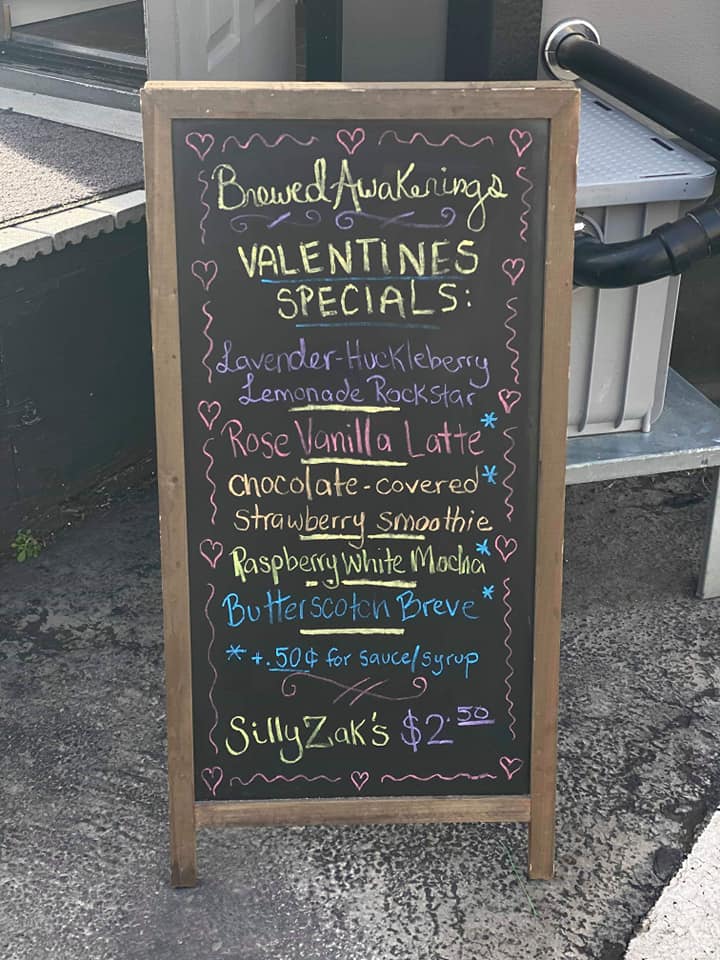 Brewed Awakenings
VALENTINES
SPECIALS:
Lavender-Huckleberry
Lemonade Rockstar
Rose Vanilla Latte*
chocolate-covered*
strawberry smoothie
Raspberry White Mocha*
Butterscotch Breve*
* +.50¢ for sauce/syrup
SillyZak's $2.50